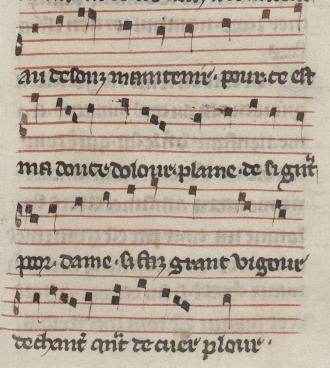 au desouz maintenir . pour ce est
ma douce dolour . plaine . de si gñt
poor . dame . si faz grant vigour
de chant̃ qñt de cuer plour .